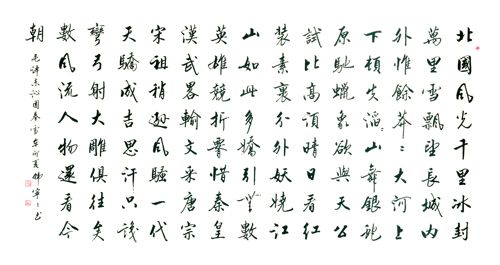 北國風光千里冰封
萬里雪飄望長城内
外惟餘莽〻大河上
下頓失滔〻山舞銀蛇
原馳蠟象欲與天公
試比高須晴日看紅
裝素裹分外妖嬈江
山如此多嬌引無數
英雄競折腰惜秦皇
漢武畧輸文采唐宗
宋祖稍遜風騷一代
天驕成吉思汗只識
彎弓射大雕俱往矣
數風流人物還看今
朝
毛澤东沁园春雪辛卯夏